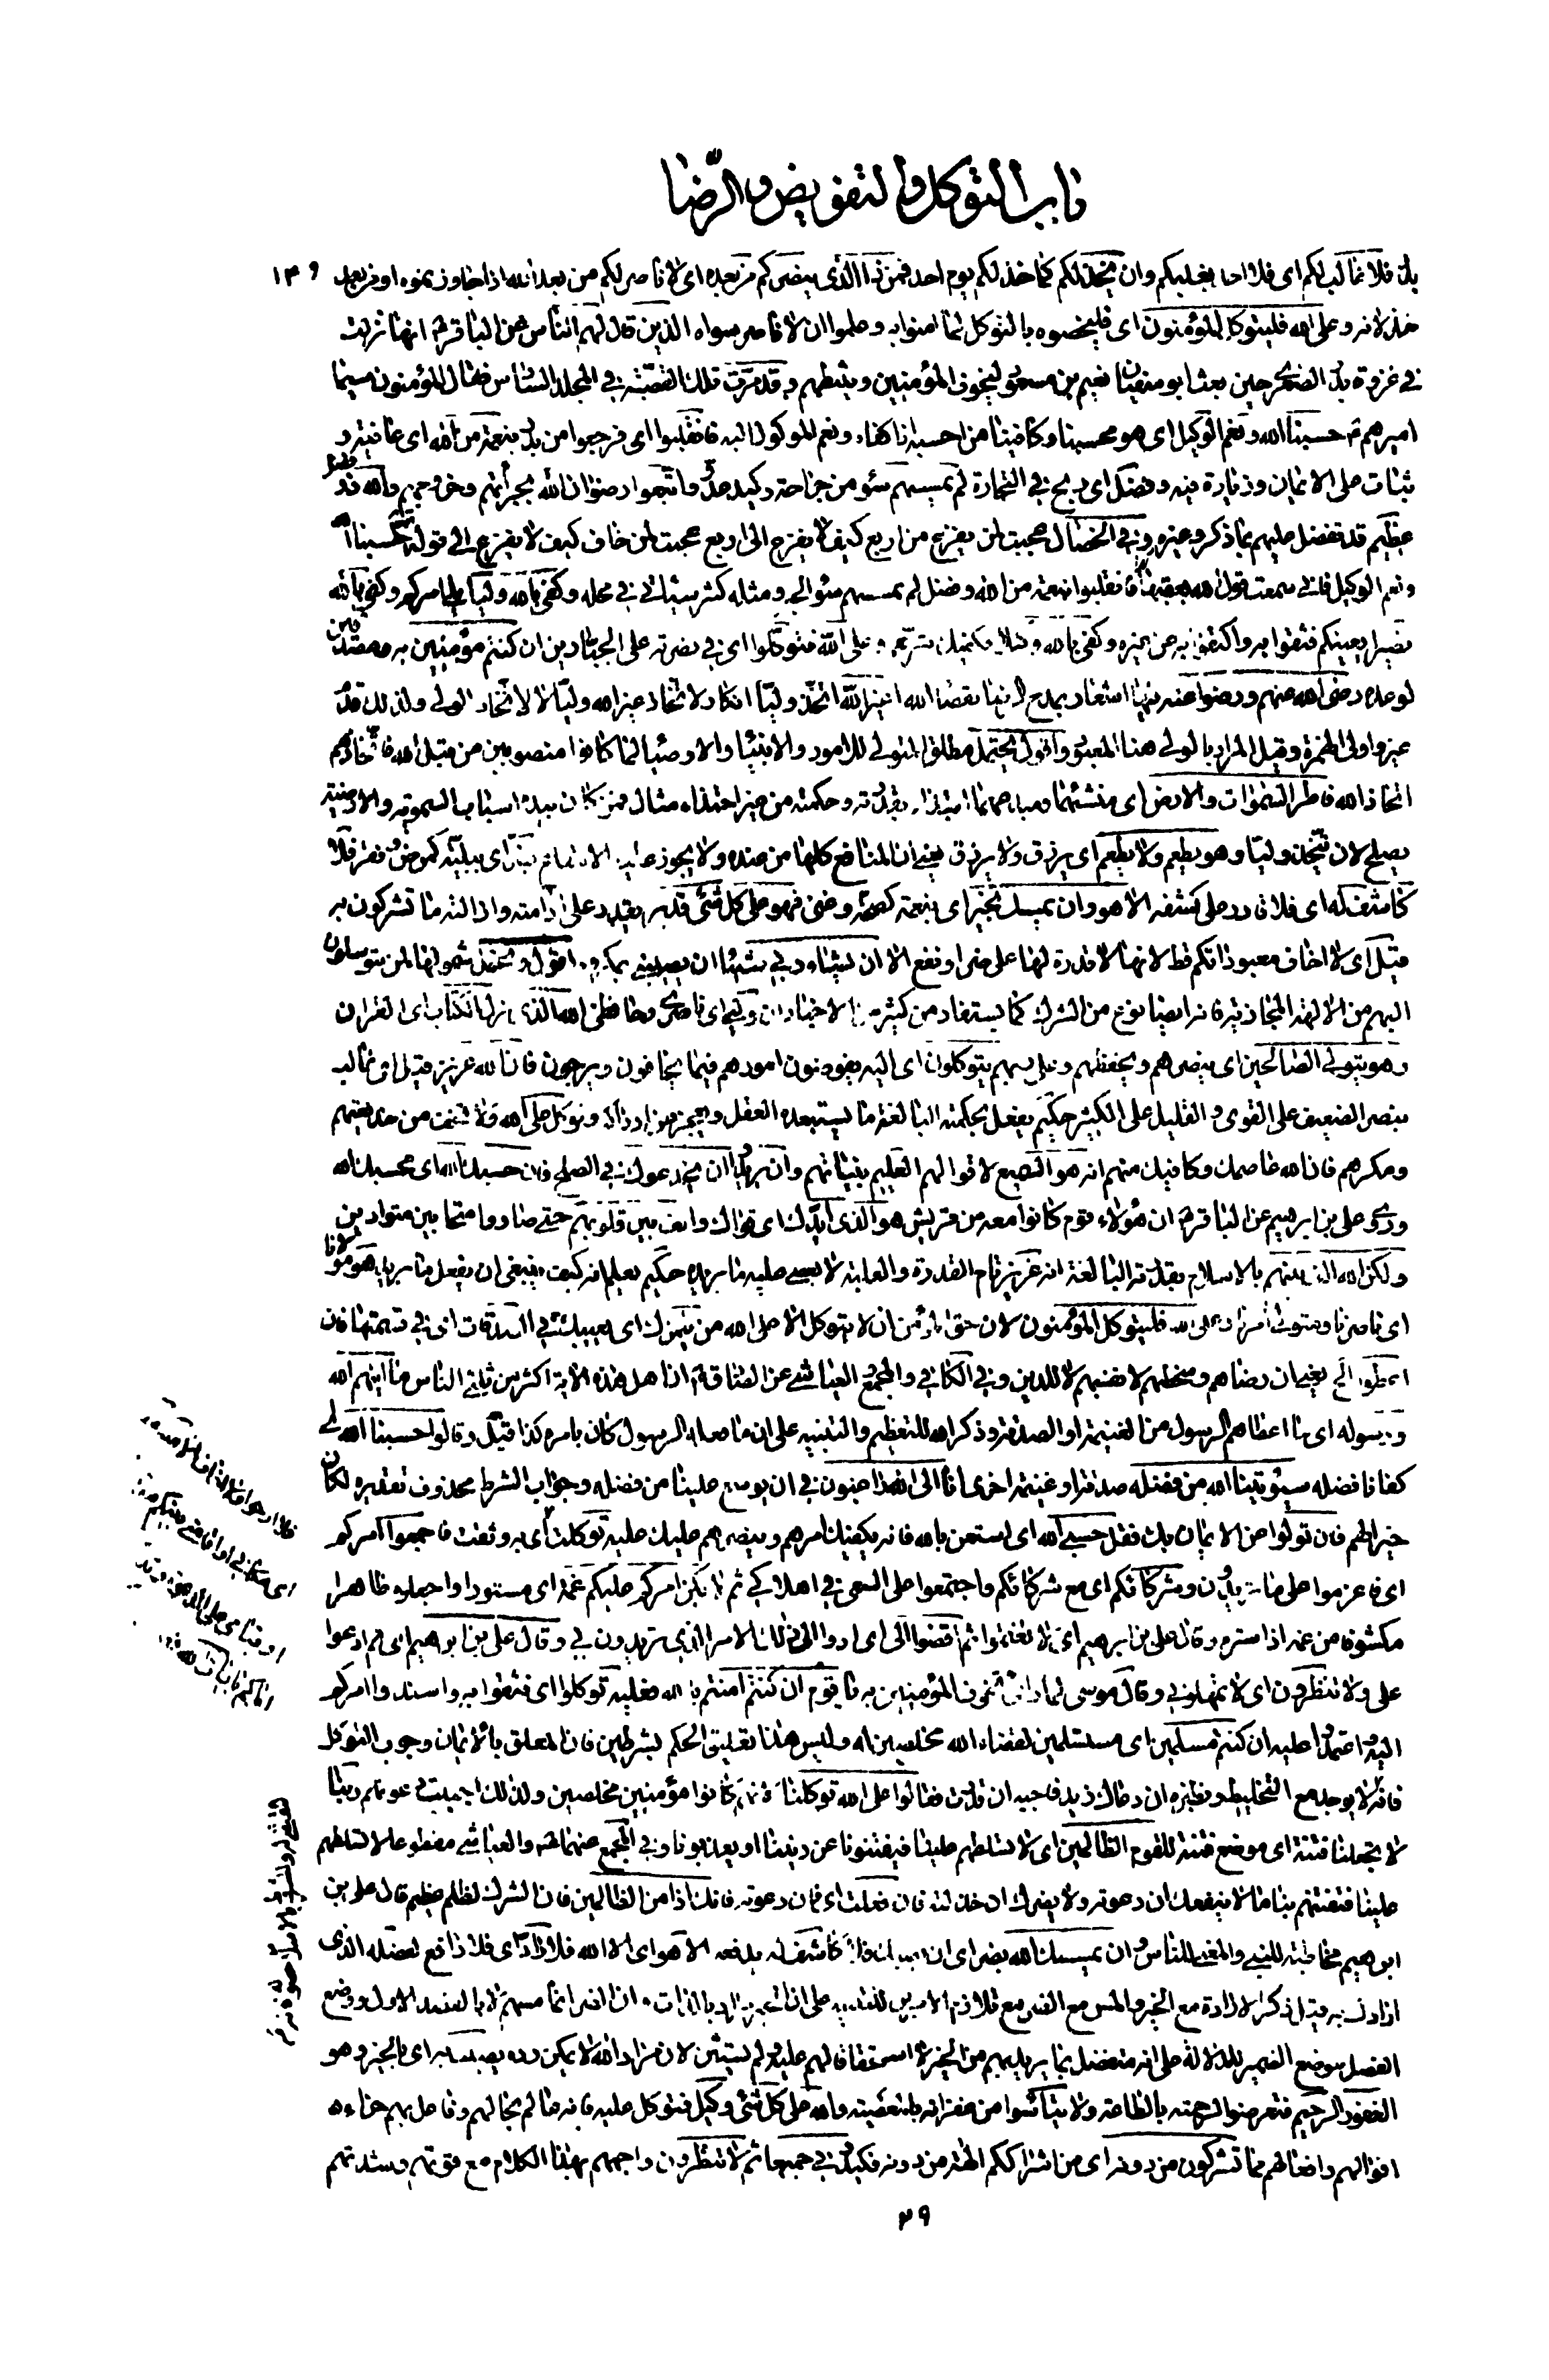 باب التوكل والتفويض والرضا
بدر فلا غالب لكم اى فلا احد يغلبكم وان يخذلكم كما خذلكم يوم احد فمن ذا الذى ينصركم من بعده اى لا ناصر لكم من بعد الله اذا جاوزتموه او من بعد
١٣٩
خذلانه وعلى الله فليتوكل المؤمنون اى فليخصوه بالتوكل لما امنوا به وعلموا ان لا ناصر سواه الذين قال لهم الناس عن الباقر ع انها نزلت
فى غزوة بدر الصغرى حين بعث ابو سفيان نعيم بن مسعود ليخوف المؤمنين ويثبطهم وقد مرت تلك القصة فى المجلد السادس فقال المؤمنون سيما
اميرهم ع حسبنا الله ونعم الوكيل اى هو محسبنا وكافينا من احسبه اذا كفاه ونعم الموكول اليه فانقلبوا اى فرجعوا من بدر بنعمة من الله اى عافية و
ثبات على الايمان وزيادة فيه وفضل اى ربح فى التجارة لم يمسسهم سوء من جراحة وكيد عدو واتبعوا رضوان الله بجرأتهم وخروجهم والله ذو فضل
عظيم قد تفضل عليهم بما ذكر وغيره وفى الخصال عجبت لمن يفزع من اربع كيف لا يفزع الى اربع عجبت لمن خاف كيف لا يفزع الى قوله حسبنا الله
ونعم الوكيل فانى سمعت قول الله بعقبها فانقلبوا بنعمة من الله وفضل لم يمسسهم سوء الخ ومثله كثير سيأتى فى محله وكفى بالله وليا يلى امركم وكفى بالله
نصيرا يعينكم فثقوا به واكتفوا به عن غيره وكفى بالله وكيلا يكفيك شرهم وعلى الله فتوكلوا اى فى نصرته على الجبارين ان كنتم مؤمنين به ومصدقين
لوعده رضى الله عنهم ورضوا عنه فيها اشعار بمدح الرضا بقضاء الله اغير الله اتخذ وليا انكار لاتخاذ غير الله وليا لا لاتخاذ الولى ولذلك قدم
غير واولى الهمزة وقيل المراد بالولى هنا المعبود واقول يحتمل مطلق المتولى للامور والانبياء والاوصياء لما كانوا منصوبين من قبل الله فاتخاذهم
اتخاذ الله فاطر السموات والارض اى منشئهما ومبدعهما ابتداء بقدرته وحكمته من غير احتذاء مثال فمن كان بيده اسباب السموية والارضية
يصلح لان يتخذ وليا وهو يطعم ولا يطعم اى يرزق ولا يرزق يعنى ان المنافع كلها من عنده ولا يجوز عليه الانتفاع بضر اى ببلية كمرض وفقر فلا
كاشف له اى فلا قادر على كشفه الا هو وان يمسسك بخير اى بنعمة كصحة وغنى فهو على كل شئ قدير يقدر على ادامته وازالته ما تشركون به
قيل اى لا اخاف معبوداتكم قط لانها لا قدرة لها على ضر او نفع الا ان يشاء ربى شيئا ان يصيبنى بمكروه اقول ويحتمل شمولها لمن يتوسلون
اليهم من الالهة المجازية فانه ايضا نوع من الشرك كما يستفاد من كثير من الاخبار ان وليى اى ناصرى وحافظى الله الذى نزل الكتاب اى القران
وهو يتولى الصالحين اى ينصرهم ويحفظهم وعلى ربهم يتوكلون اى اليه يفوضون امورهم فيما يخافون ويرجون فان الله عزيز قيل اى غالب
بنصر الضعيف على القوى والقليل على الكثير حكيم يفعل بحكمته البالغة ما يستبعده العقل ويعجز عن ادراكه وتوكل على الله ولا تخف من خديعتهم
ومكرهم فان الله عاصمك وكافيك منهم انه هو السميع لاقوالهم العليم بنياتهم وان يريدوا ان يخدعوك فى الصلح فان حسبك الله اى محسبك الله
وروى على بن ابرهيم عن الباقر ع ان هؤلاء قوم كانوا معه من قريش هو الذى ايدك اى قواك والف بين قلوبهم حتى صاروا متحابين متوادين
ولكن الله الف بينهم بالاسلام بقدرته البالغة انه عزيز تام القدرة والغلبة لا يعصى عليه ما يريده حكيم يعلم انه كيف ينبغى ان يفعل ما يريد هو مولانا
اى ناصرنا ومتولى امرنا وعلى الله فليتوكل المؤمنون لان حق المؤمن ان لا يتوكل الا على الله من يلمزك اى يعيبك فى الصدقات اى فى قسمتها فان
اعطوا الخ يعنى ان رضاهم وسخطهم لانفسهم لا للدين وفى الكافى والمجمع والعياشى عن الصادق ع ان اهل هذه الاية اكثر من ثلثى الناس ما اتيهم الله
ورسوله اى ما اعطاهم الرسول من الغنيمة او الصدقة وذكر الله للتعظيم والتنبيه على ان ما فعله الرسول كان بامره كذا قيل وقالوا حسبنا الله اى
كفانا فضله سيؤتينا الله من فضله صدقة او غنيمة اخرى انا الى الله راغبون فى ان يوسع علينا من فضله وجواب الشرط محذوف تقديره لكان
خيرا لهم فان تولوا عن الايمان بك فقل حسبى الله اى استعن بالله فانه يكفيك امرهم وينصرهم عليك عليه توكلت اى به وثقت فاجمعوا امركم
اى فاعزموا على ما تريدون وشركائكم اى مع شركائكم واجتمعوا على السعى فى اهلاكى ثم لا يكن امركم عليكم غمة اى مستورا واجعلوه ظاهرا
مكشوفا من غمه اذا ستره وقال على بن ابرهيم اى لا تغتموا ثم اقضوا الى اى ادوا الى ذلك الامر الذى تريدون بى وقال على بن ابرهيم اى ثم ادعوا
على ولا تنظرون اى لا تمهلونى وقال موسى لما راى تخوف المؤمنين به يا قوم ان كنتم امنتم بالله فعليه توكلوا اى فثقوا به واسندوا امركم
اليه واعتمدوا عليه ان كنتم مسلمين اى مستسلمين لقضاء الله مخلصين له وليس هذا تعليق الحكم بشرطين فان المعلق بالايمان وجوب التوكل
فانه لا يوجد مع التخليط ونظيره ان دعاك زيد فاجبه ان قدرت فقالوا على الله توكلنا لانهم كانوا مؤمنين مخلصين ولذلك اجيبت دعوتهم ربنا
لا تجعلنا فتنة اى موضع فتنة للقوم الظالمين اى لا تسلطهم علينا فيفتنونا عن ديننا او يعذبونا وفى المجمع عنهما ع والعياشى مقطوعا لا تسلطهم
علينا فتفتنهم بنا ما لا ينفعك ان دعوته ولا يضرك ان خذلته فان فعلت اى فان دعوته فانك اذا من الظالمين فان الشرك لظلم عظيم قال على بن
ابرهيم مخاطبة للنبى والمعنى للناس وان يمسسك الله بضر اى ان يصبك فلا كاشف له يدفعه الا هو اى الا الله فلا راد اى فلا دافع لفضله الذى
ارادك به قيل ذكر الارادة مع الخير والمس مع الضر مع تلازم الامرين للتنبيه على ان الخير مراد بالذات وان الضر انما مسهم لا بالقصد الاول ووضع
الفضل موضع الضمير للدلالة على انه متفضل بما يريد بهم من الخير لا استحقاق لهم عليه ولم يستثن لان مراد الله لا يمكن رده يصيب به اى بالخير وهو
الغفور الرحيم فتعرضوا لرحمته بالطاعة ولا تيأسوا من غفرانه بالمعصية والله على كل شئ وكيل فتوكل عليه فانه عالم بحالهم وفاعل بهم جزاء
اقوالهم وافعالهم مما تشركون من دونه اى من اشراككم الهة من دونه فكيدونى جميعا ثم لا تنظرون واجههم بهذا الكلام مع قوتهم وشدتهم
٢٩